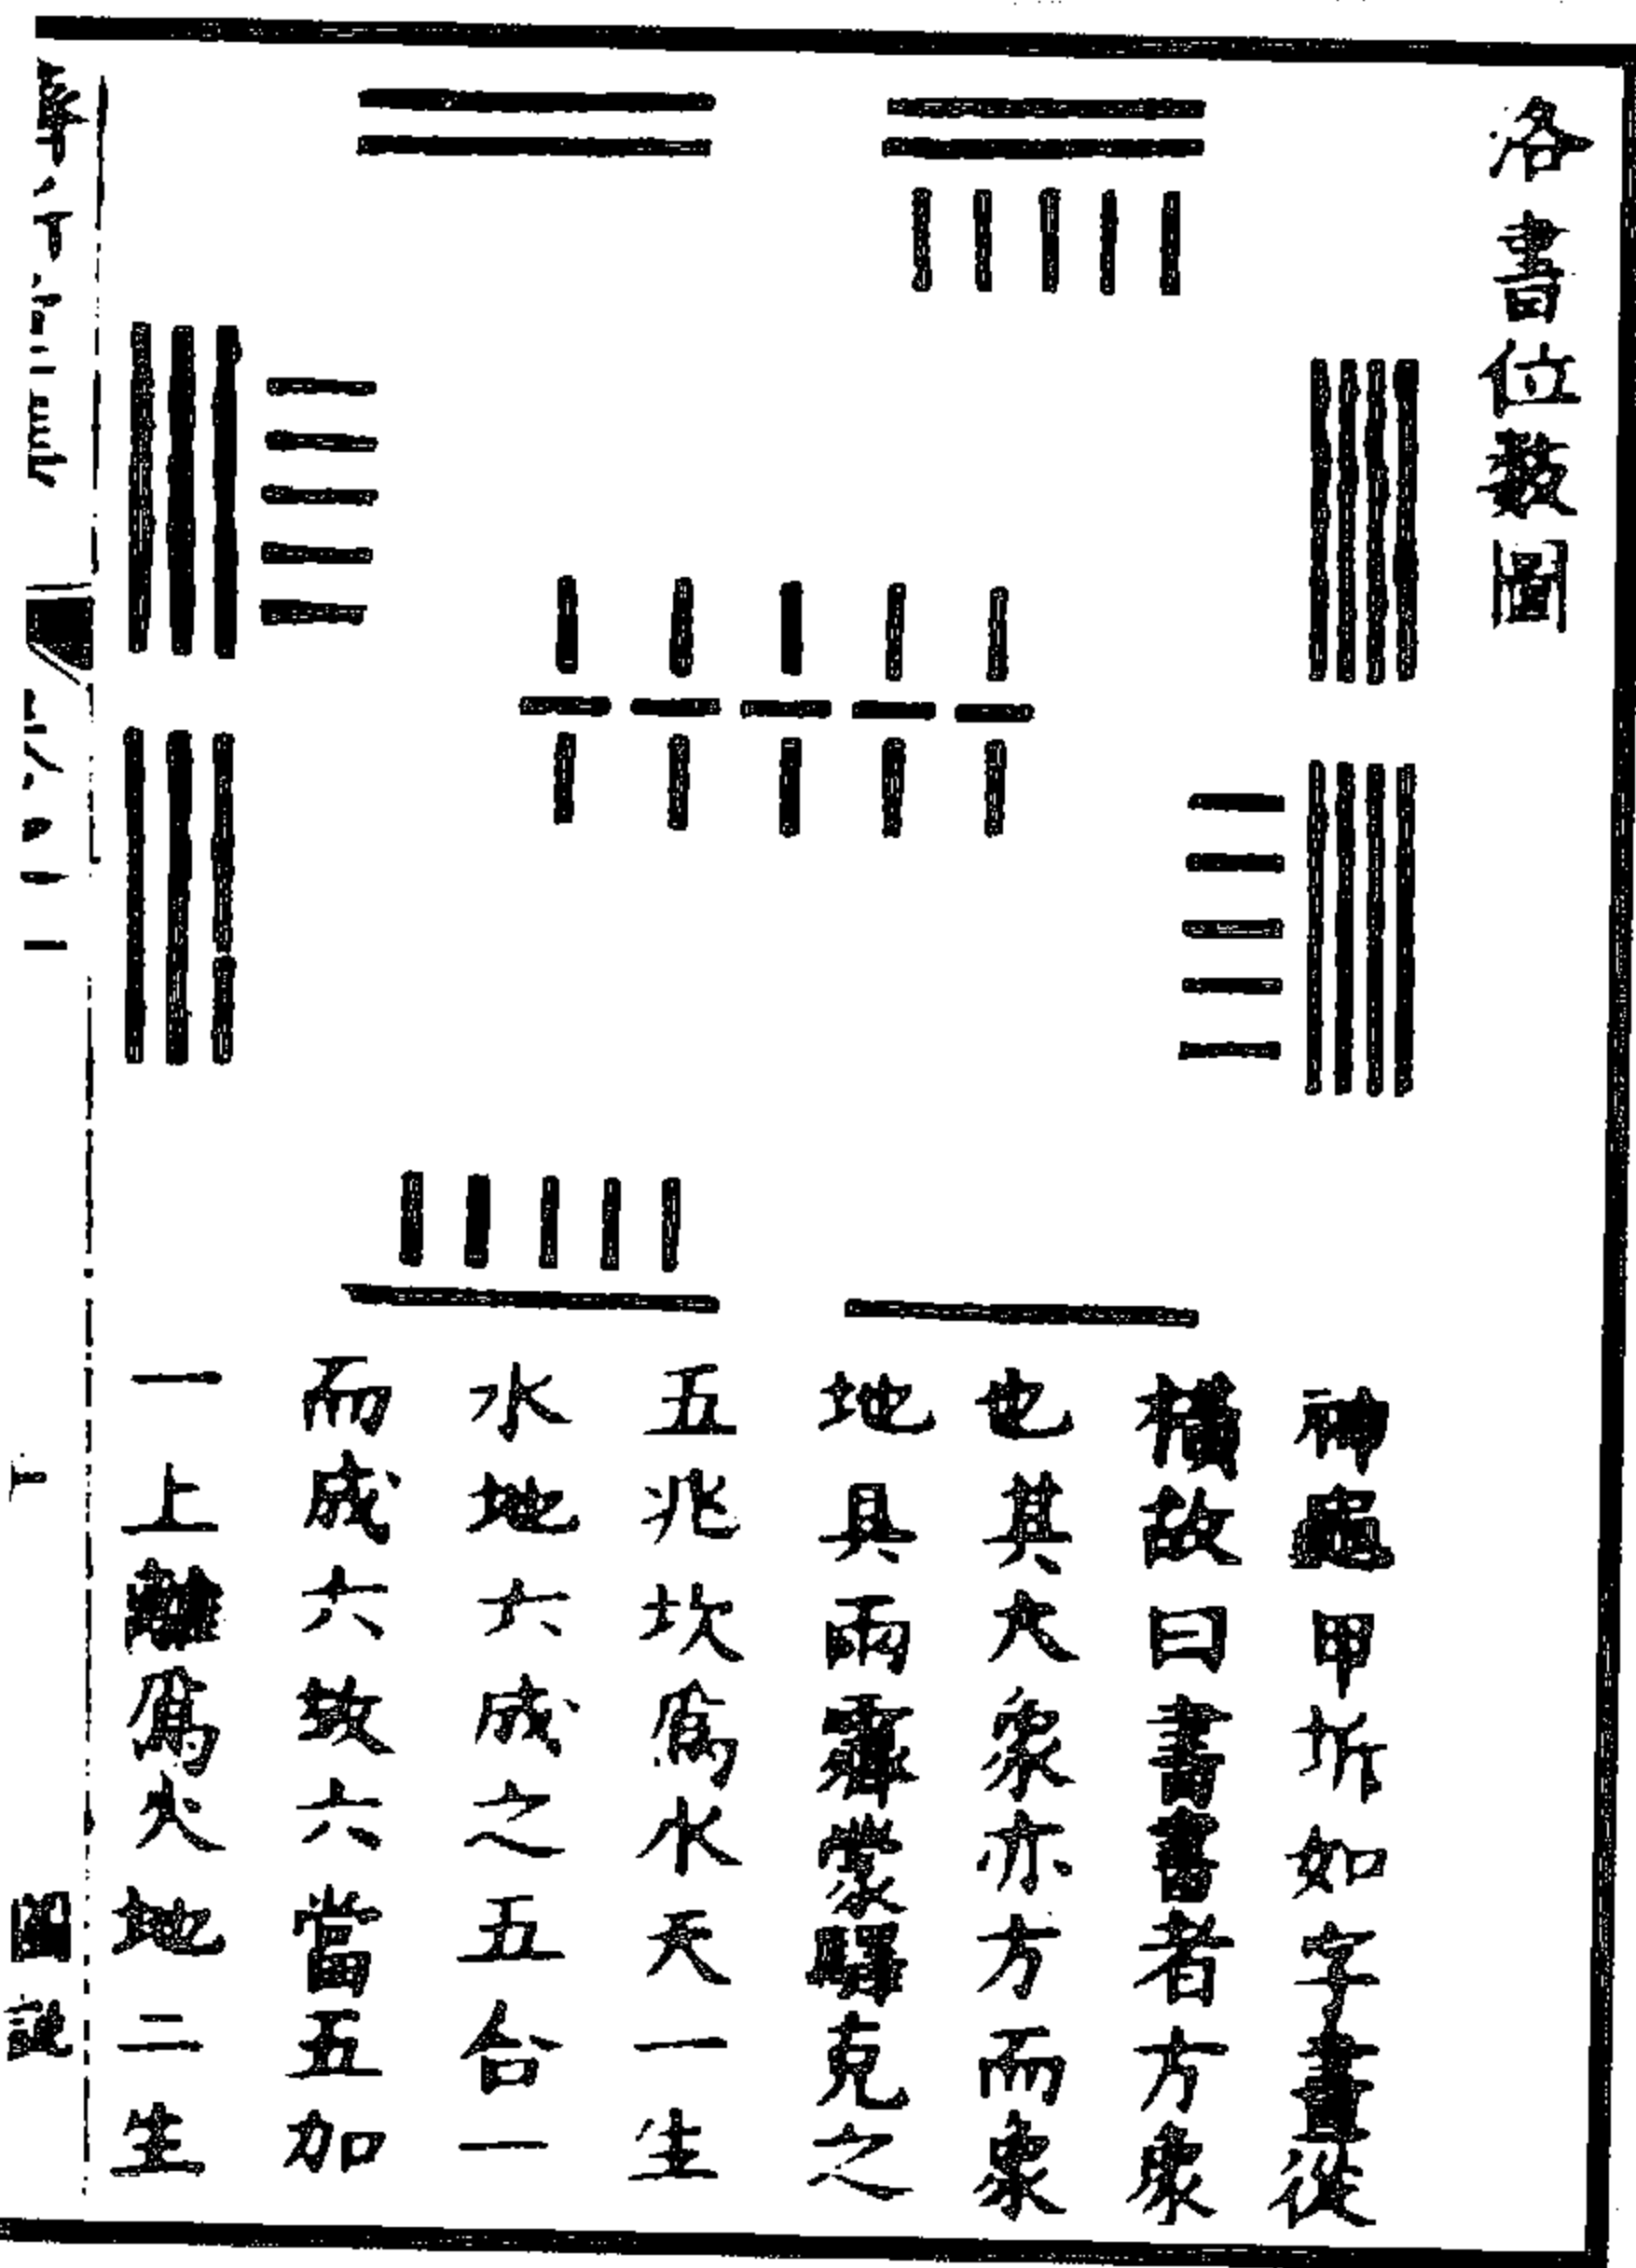 洛書位數圖
神龜甲坼如字畫從
橫故曰書書者方象
也其大象亦方而象
地具雨霽蒙驛克之
五兆坎爲水天一生
水地六成之五合一
而成六故六當五加
一上離爲火地二生
圖說